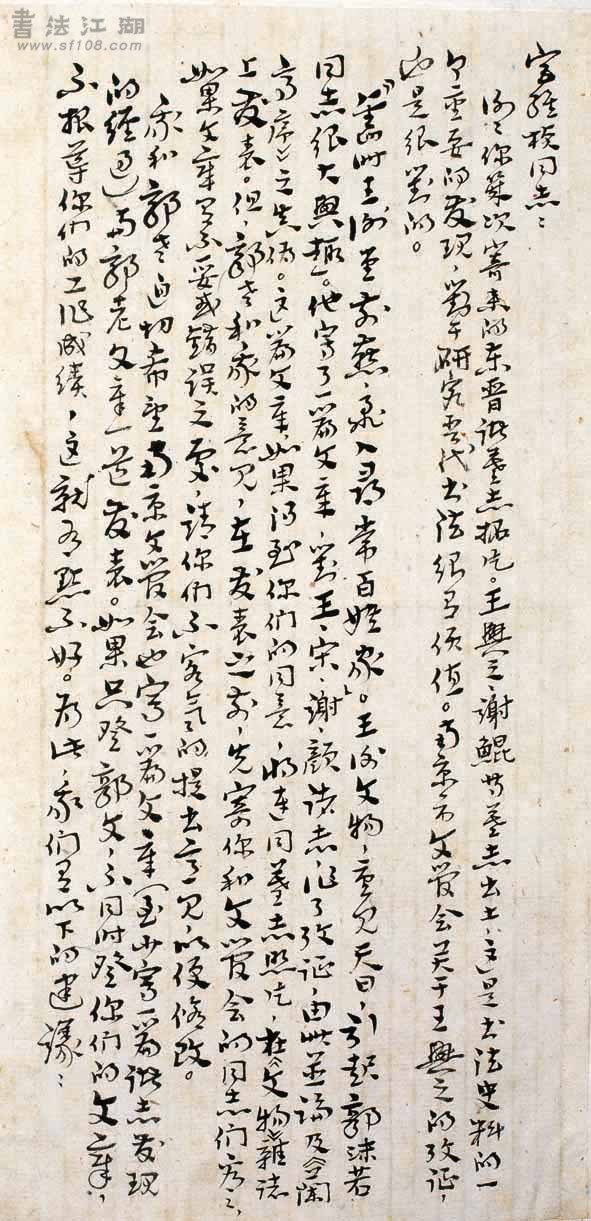 書法江湖
www.sf108.com
宫维桢同志：
谢谢你几次寄来的东晋诸墓志拓片。王興之、谢鯤等墓志出土，这是书法史料的一
个重要的发现，對于研究晋代书法很有價值。南京市文管会关于王興之的考证，
也是很對的。
“舊时王谢堂前燕，飛入尋常百姓家”。王谢文物，重见天日，引起郭沫若
同志很大興趣。他写了一篇文章，對王、宋、谢、顔诸志作了考证，由此並論及《蘭
亭序》之真偽。这篇文章，如果得到你们的同意，将连同墓志照片，在《文物》雜誌
上发表。但，郭老和我的意见，在发表之前，先寄你和文管会的同志们看看，
如果文章有不妥或錯误之處，請你们不客氣的提出意见以便修改。
我和郭老迫切希望南京文管会也写一篇文章（至少写一篇诸志发现
的经過）与郭老文章一道发表。如果只登郭文，不同时登你们的文章，
不报導你们的工作成绩，这就有點不好。为此，我们有以下的建議：